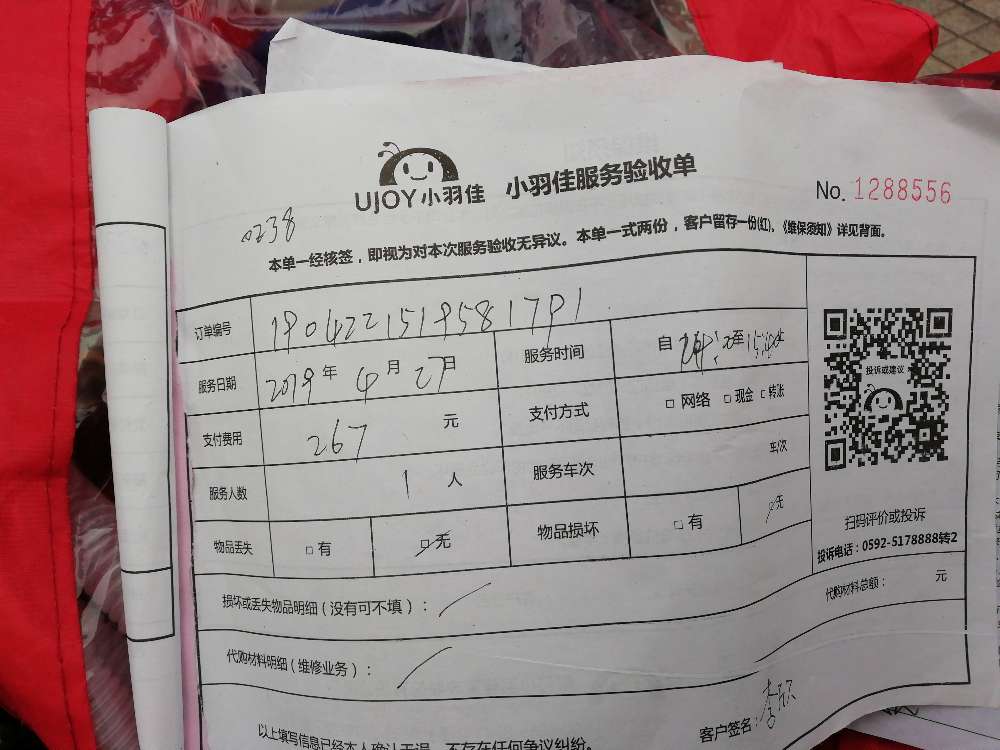 UJOY小羽佳 小羽佳服务验收单 No. 1288556
0238
本单一经核签，即视为对本次服务验收无异议。本单一式两份，客户留存一份(红)，《维保须知》详见背面。
订单编号 1904221519581791
服务日期 2019年 4月 27日 服务时间 自 至
支付费用 267 元 支付方式 □ 网络 □ 现金 □ 转账
服务人数 1 人 服务车次 车次
物品丢失 □ 有 □ 无 物品损坏 □ 有 无
投诉或建议
扫码评价或投诉
投诉电话：0592-5178888转2
损坏或丢失物品明细（没有可不填）： 代购材料总额： 元
代购材料明细（维修业务）：
以上填写信息已经本人确认无误，不存在任何争议纠纷。 客户签名：李